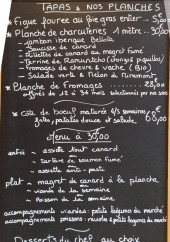 TAPAS & NOS PLANCHES
* Figue fourrée au foie gras entier : 5,00
* Planche de charcuteries 1 mètre - 30,00
- Jambon ibérique Bellota
- Saucisse de canard
- Rillettes de canard au magret fumé
- Terrine de
- Fromages de chèvre & vache (Bio)
- Salade verte & Melon de
* Planche de Fromages - 28,00
affinés de 12 à 36 mois sélectionnés par nos soins
* Côte de boeuf maturée 6/8 semaines
frites, patates douces et salade. 68,00
Menu à 30,00
entrée - assiette tout canard
- tartine de saumon fumé
- assiette anti-pasti
plat - magret de canard à la plancha
- viande de la semaine
- Poisson de la semaine
accompagnements viandes : petits légumes du marché
accompagnements poissons : risotto & petits légumes du marché
Desserts du chef au choix